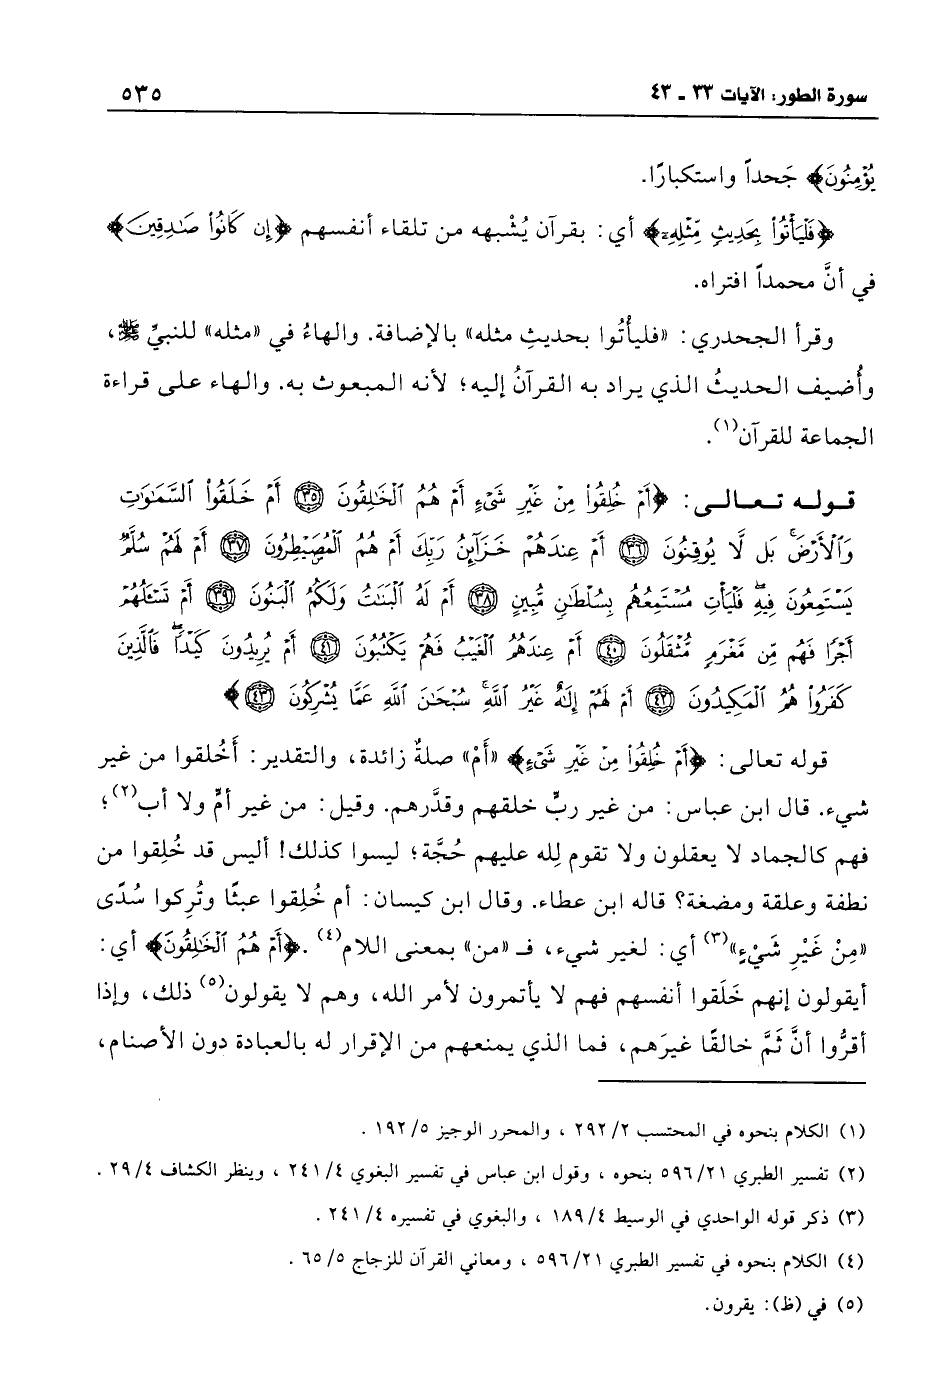 سورة الطور: الآيات ٣٣ ـ ٤٣ ٥٣٥
يُؤْمِنُونَ﴾ جَحداً واستكبارًا.
﴿فَلْيَأْتُواْ بِحَدِيثٍ مِّثْلِهِۦٓ﴾ أي: بقرآن يُشْبهه من تلقاء أنفسهم ﴿إِن كَانُواْ صَٰدِقِينَ﴾
في أنَّ محمداً افتراه.
وقرأ الجحدري: «فليأْتُوا بحديثِ مثله» بالإضافة. والهاءُ في «مثله» للنبيِّ ﷺ،
وأُضيف الحديثُ الذي يراد به القرآنُ إليه؛ لأنه المبعوث به. والهاء على قراءة
الجماعة للقرآن(١).
قوله تعالى: ﴿أَمْ خُلِقُواْ مِنْ غَيْرِ شَىْءٍ أَمْ هُمُ ٱلْخَٰلِقُونَ ٣٥ أَمْ خَلَقُواْ ٱلسَّمَٰوَٰتِ
وَٱلْأَرْضَۚ بَل لَّا يُوقِنُونَ ٣٦ أَمْ عِندَهُمْ خَزَآئِنُ رَبِّكَ أَمْ هُمُ ٱلْمُصَۣيْطِرُونَ ٣٧ أَمْ لَهُمْ سُلَّمٌ
يَسْتَمِعُونَ فِيهِۖ فَلْيَأْتِ مُسْتَمِعُهُم بِسُلْطَٰنٍ مُّبِينٍ ٣٨ أَمْ لَهُ ٱلْبَنَٰتُ وَلَكُمُ ٱلْبَنُونَ ٣٩ أَمْ تَسْـَٔلُهُمْ
أَجْرًا فَهُم مِّن مَّغْرَمٍ مُّثْقَلُونَ ٤٠ أَمْ عِندَهُمُ ٱلْغَيْبُ فَهُمْ يَكْتُبُونَ ٤١ أَمْ يُرِيدُونَ كَيْدًاۖ فَٱلَّذِينَ
كَفَرُواْ هُمُ ٱلْمَكِيدُونَ ٤٢ أَمْ لَهُمْ إِلَٰهٌ غَيْرُ ٱللَّهِۚ سُبْحَٰنَ ٱللَّهِ عَمَّا يُشْرِكُونَ ٤٣﴾
قوله تعالى: ﴿أَمْ خُلِقُواْ مِنْ غَيْرِ شَىْءٍ﴾ «أَمْ» صلةٌ زائدة، والتقدير: أَخُلقوا من غير
شيء. قال ابن عباس: من غير ربٍّ خلقهم وقدَّرهم. وقيل: من غير أمٍّ ولا أب(٢)؛
فهم كالجماد لا يعقلون ولا تقوم لِله عليهم حُجَّة؛ ليسوا كذلك! أليس قد خُلِقوا من
نطفة وعلقة ومضغة؟ قاله ابن عطاء. وقال ابن كيسان: أم خُلِقوا عبثًا وتُرِكوا سُدًى
«مِنْ غَيْرِ شَيْءٍ»(٣) أي: لغير شيء، فـ «من» بمعنى اللام(٤). ﴿أَمْ هُمُ ٱلْخَٰلِقُونَ﴾ أي:
أيقولون إنهم خَلَقوا أنفسهم فهم لا يأتمرون لأمر الله، وهم لا يقولون(٥) ذلك، وإذا
أقرُّوا أنَّ ثَمَّ خالقًا غيرَهم، فما الذي يمنعهم من الإقرار له بالعبادة دون الأصنام،
(١) الكلام بنحوه في المحتسب ٢٩٢/٢ ، والمحرر الوجيز ١٩٢/٥ .
(٢) تفسير الطبري ٥٩٦/٢١ بنحوه ، وقول ابن عباس في تفسير البغوي ٢٤١/٤ ، وينظر الكشاف ٢٩/٤ .
(٣) ذكر قوله الواحدي في الوسيط ١٨٩/٤ ، والبغوي في تفسيره ٢٤١/٤ .
(٤) الكلام بنحوه في تفسير الطبري ٥٩٦/٢١ ، ومعاني القرآن للزجاج ٦٥/٥ .
(٥) في (ظ): يقرون.